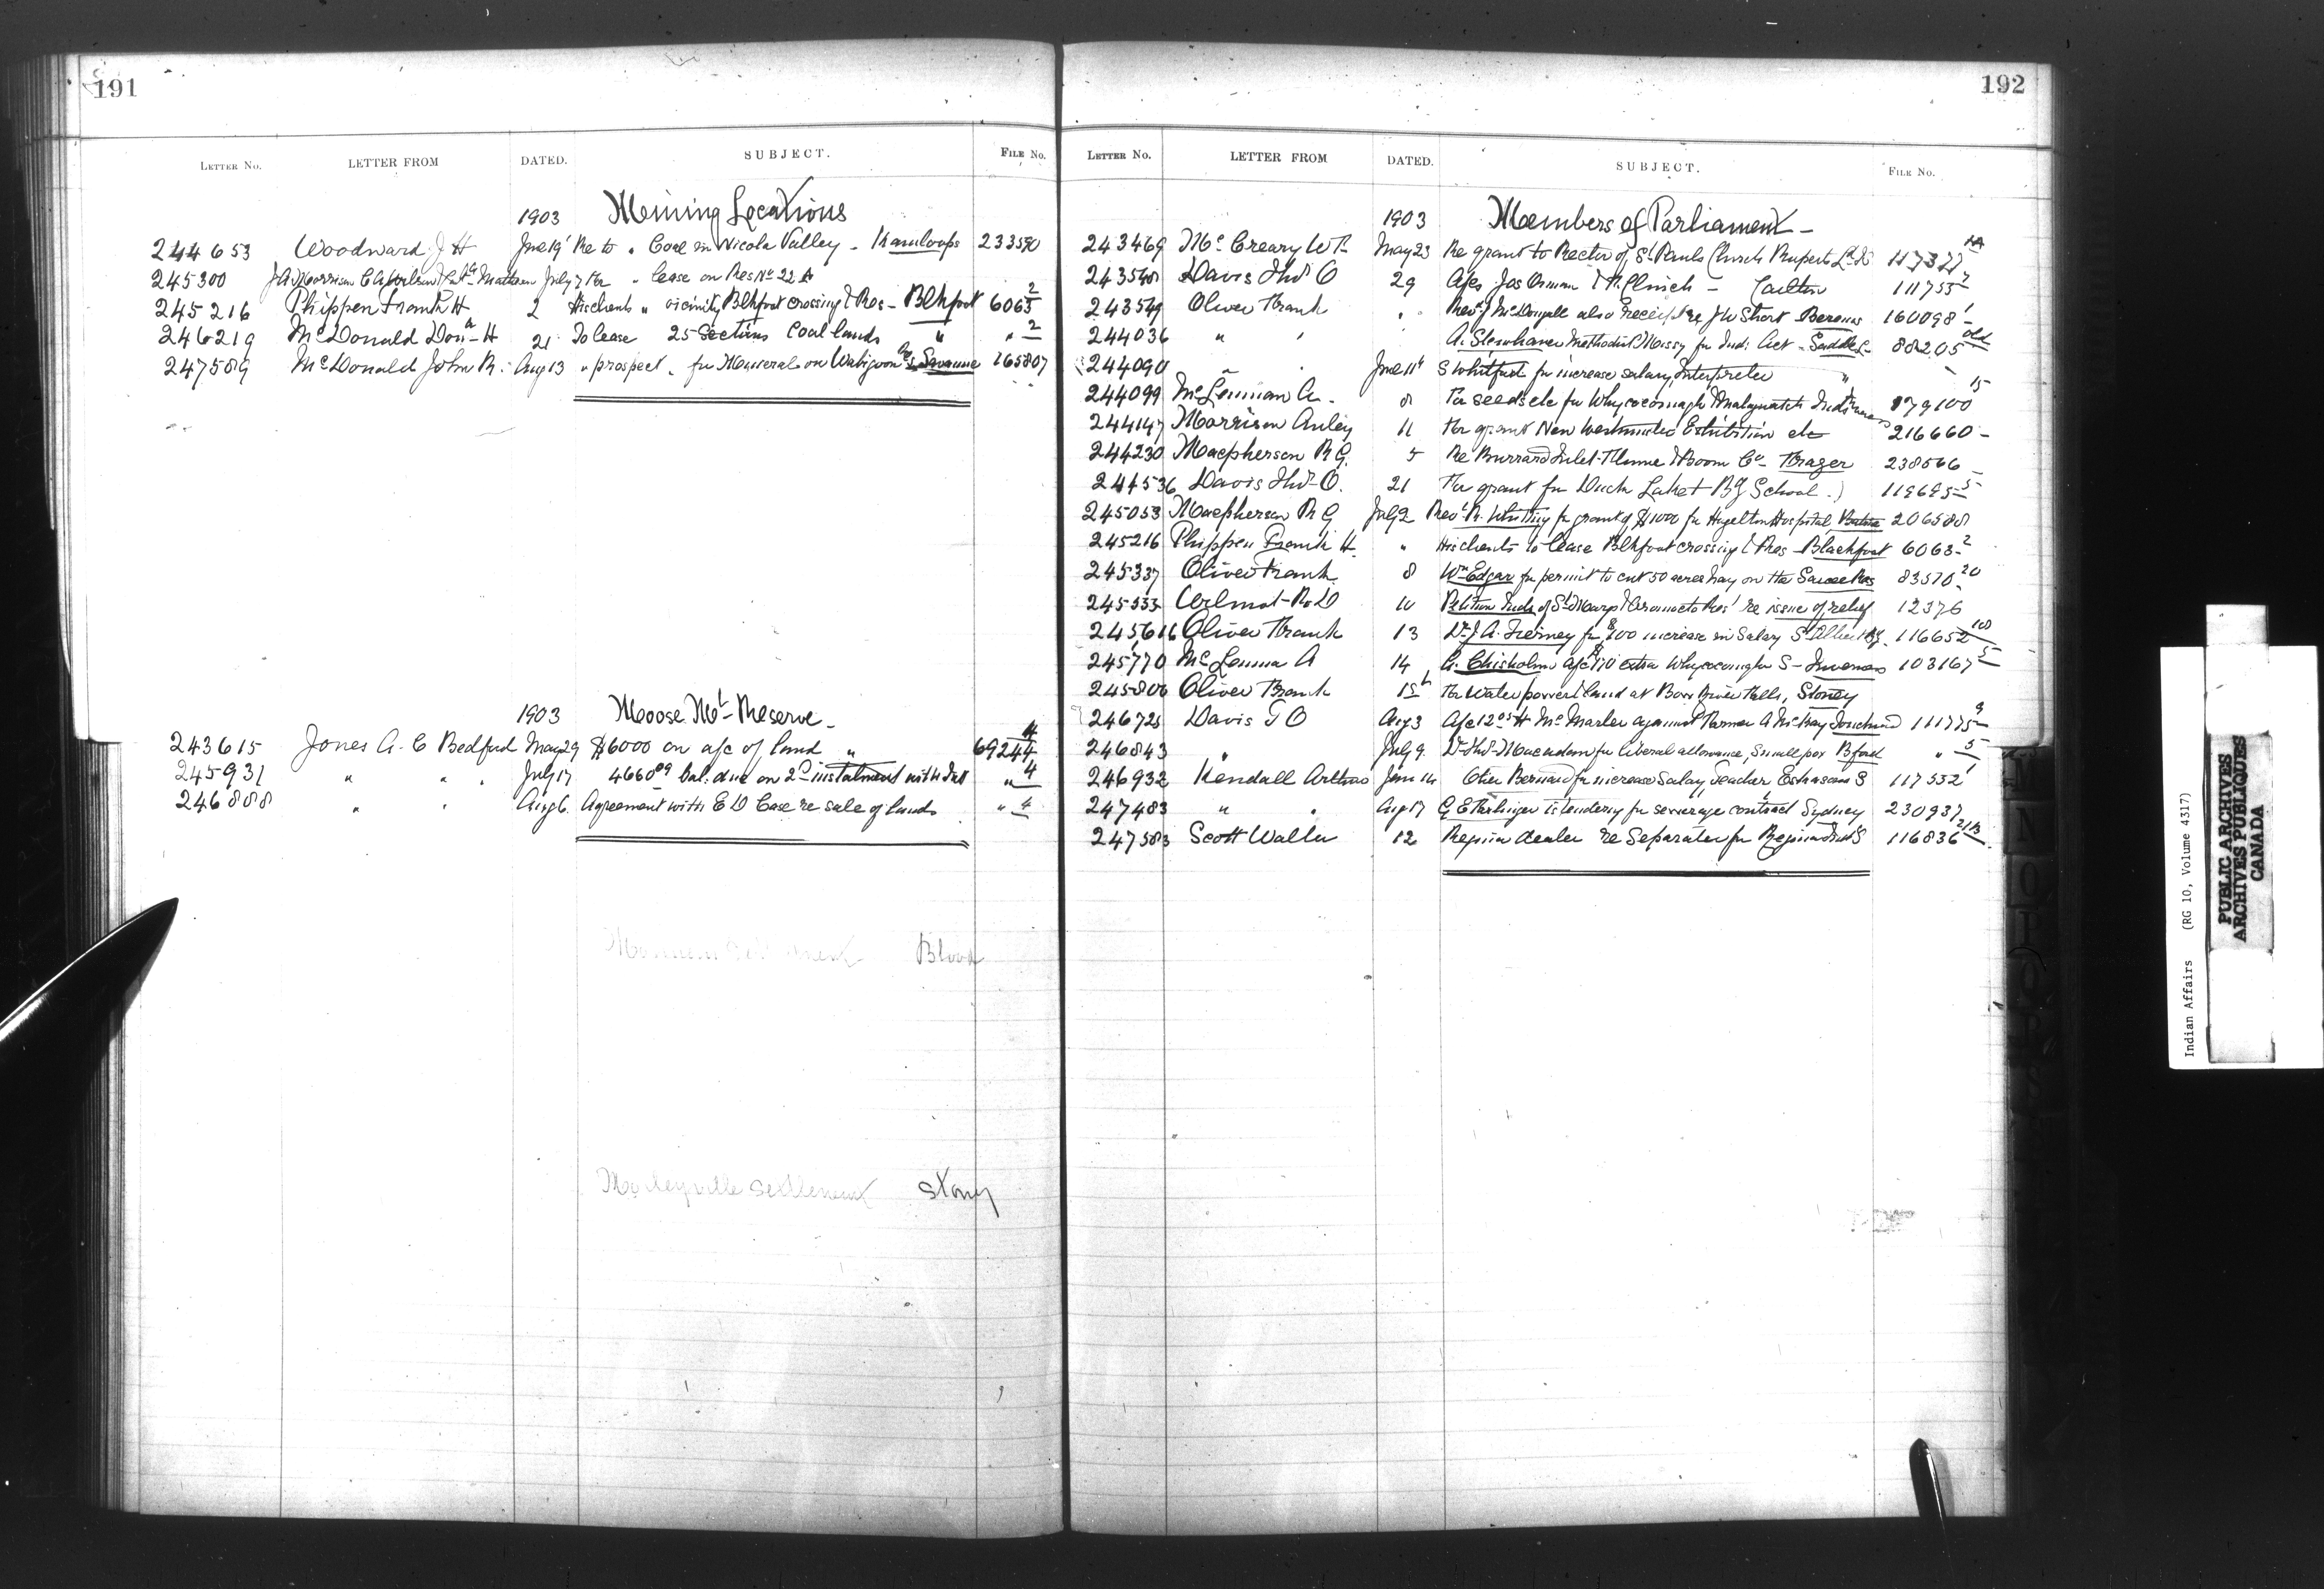 191
LETTER No. LETTER FROM DATED. SUBJECT. FILE No.
1903 Mining Locations
244653 Woodward J H June 19 Re to " Coal in Nicola Valley - Kamloops 233590
245300 July 7 For " lease on Res No 22 A
245216 Phippen Frank H 2 His clients " vicinity Blkfoot crossing & Res - Blkfoot 6063 2
246219 McDonald Don. H 21 To lease 25 Sections Coal lands " " 2
247589 McDonald John R. Aug 13 " prospect " for Mineral on Wabigoon Res Savanne 165807
1903 Moose Mt Reserve
243615 Jones A. C Bedford May 29 $6000 on a/c of land " 69244 4
245931 " " " July 17 4660 09 bal. due on 2nd instalment with Int " 4
246888 " " Aug 6. Agreement with E D Case re sale of lands " 4
Blood
Morleyville settlement Stony
192
LETTER No. LETTER FROM DATED. SUBJECT. FILE No.
1903 Members of Parliament -
243469 McCreary W F. May 23 Re grant to Rector of St Pauls Church Ruperts Ld
243548 Davis Thos O 29 A/cs Jas Orman & Clinich - Carlton 111755 2
243549 Oliver Frank " Revd J McDougall also receipt re J W Short Berens 160098 1
244036 " " A. Methodist Missy for Indn Act - Saddle L - 88205 old
244090 " June 11 S Whitford for increase salary, Interpreter "
244099 McLennan A. 8 For seeds etc for Whycocomagh & Malagwatch Inds 15
244147 Morrison Auley 11 For grant New Westminster Exhibition etc 216660 -
244230 Macpherson R G. 5 Re Burrard Inlet Flume & Boom Co - Frazer 238566
244536 Davis Thos O. 21 For grant for Duck Lake Bg School 5
245053 Macpherson R G July 2 Revd R. Whitting for grant of $1000 for Hazelton Hospital, Babine 206588
245216 Phippen Frank H. " His clients to lease Blkfoot crossing & Res - Blackfoot 6063 - 2
245337 Oliver Frank 8 Wm Edgar for permit to cut 50 acres hay on the Sarcee Res 83570 20
245533 Wilmot R. D 10 Petition Inds of St Marys & Oromocto Res' re issue of relief 12376
245616 Oliver Frank 13 Dr J A. Tierney for $100 increase in Salary St Albert Bg. 116652
245770 McLennan A 14 A. Chisholm a/c $170 extra Whycocomagh S - Inverness 103167 5
245806 Oliver Frank 15 For Water power & land at Bow River Falls, Stoney
246725 Davis T O Aug 3 A/c H McMarler against Farmer A McKay 111775 9
246843 " July 9. Dr Thos Macadam for liberal allowance, Small pox Bford " 5
246932 Kendall Arthur June 14 Bernard for increase Salary, Teacher, Eskasoni S 117532 1
247483 " " Aug 17 is tendering for sewerage contract Sydney 230937
247583 Scott Walter 12 Regina dealer re Separator for Regina Indl S 116836
Indian Affairs (RG 10, Volume 4317)
PUBLIC ARCHIVES
ARCHIVES PUBLIQUES
CANADA